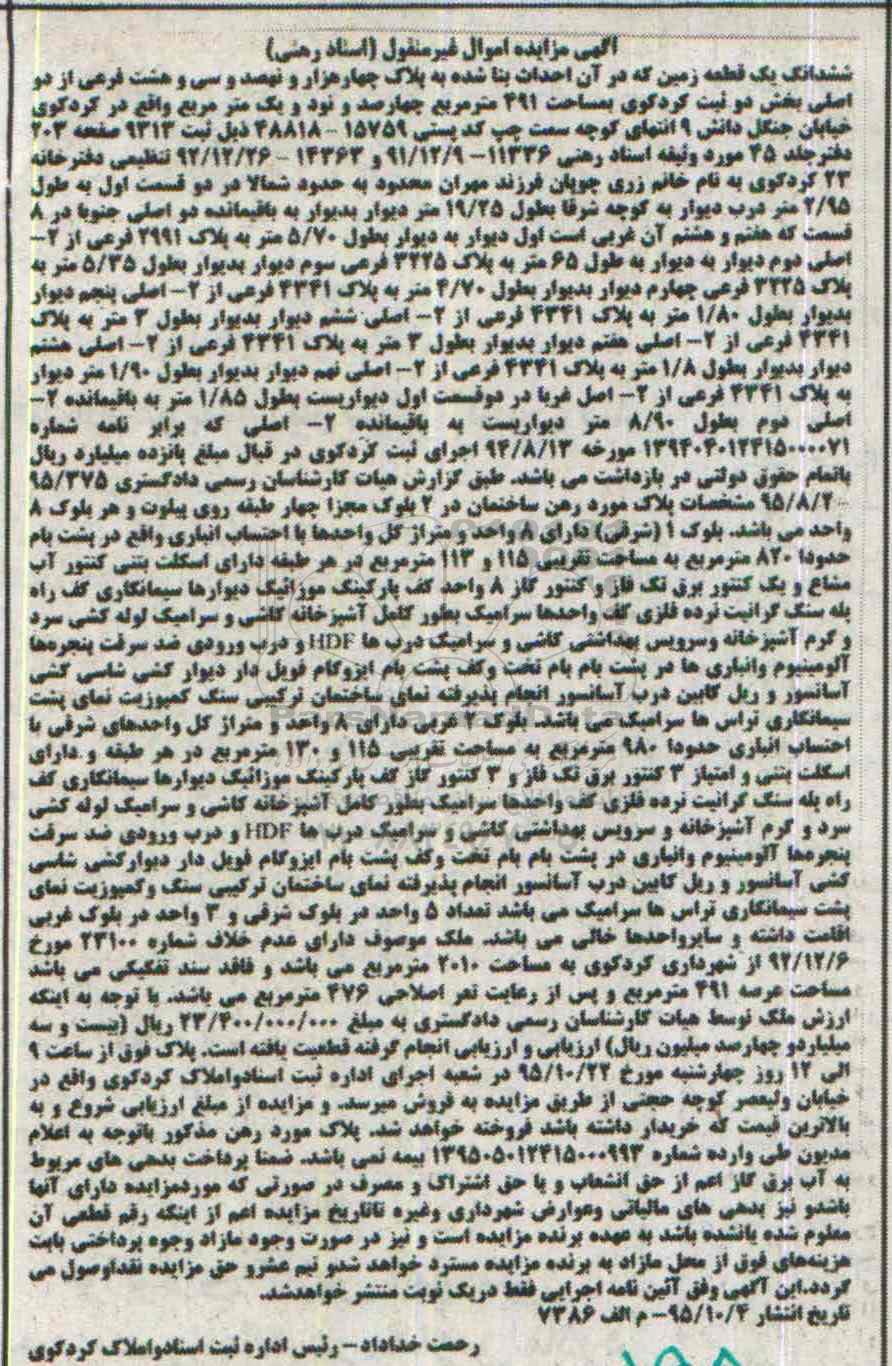 آگهی مزایده اموال غیرمنقول (اسناد رهنی)
ششدانگ یک قطعه زمین که در آن احداث بنا شده به پلاک چهارهزار و نهصد و سی و هشت فرعی از دو
اصلی بخش دو ثبت کردکوی بمساحت ۴۹۱ مترمربع چهارصد و نود و یک متر مربع واقع در کردکوی
خیابان جنگل دانش ۹ انتهای کوچه سمت چپ کد پستی ۱۵۷۵۹ - ۴۸۸۱۸ ذیل ثبت ۹۳۱۳ صفحه ۲۰۳
دفترجلد ۴۵ مورد وثیقه اسناد رهنی ۱۱۳۳۶- ۹۱/۱۲/۹ و ۱۴۳۶۳ - ۹۲/۱۲/۲۶ تنظیمی دفترخانه
۲۳ کردکوی به نام خانم زری چوپان فرزند مهران محدود به حدود شمالا در دو قسمت اول به طول
۲/۹۵ متر درب دیوار به کوچه شرقا بطول ۱۹/۲۵ متر دیوار بدیوار به باقیمانده دو اصلی جنوبا در ۸
قسمت که هفتم و هشتم آن غربی است اول دیوار به دیوار بطول ۵/۷۰ متر به پلاک ۲۹۹۱ فرعی از ۲-
اصلی دوم دیوار به دیوار به طول ۶۵ متر به پلاک ۳۲۲۵ فرعی سوم دیوار بدیوار بطول ۵/۳۵ متر به
پلاک ۳۲۲۵ فرعی چهارم دیوار بدیوار بطول ۴/۷۰ متر به پلاک ۴۳۴۱ فرعی از ۲- اصلی پنجم دیوار
بدیوار بطول ۱/۸۰ متر به پلاک ۴۳۴۱ فرعی از ۲- اصلی ششم دیوار بدیوار بطول ۳ متر به پلاک
۴۳۴۱ فرعی از ۲- اصلی هفتم دیوار بدیوار بطول ۳ متر به پلاک ۴۳۴۱ فرعی از ۲- اصلی هشتم
دیوار بدیوار بطول ۱/۸ متر به پلاک ۴۳۴۱ فرعی از ۲- اصلی نهم دیوار بدیوار بطول ۱/۹۰ متر دیوار
به پلاک ۴۳۴۱ فرعی از ۲- اصل غربا در دوقسمت اول دیواریست بطول ۱/۸۵ متر به باقیمانده ۲-
اصلی دوم بطول ۸/۹۰ متر دیواریست به باقیمانده ۲- اصلی که برابر نامه شماره
۱۳۹۴۰۴۰۱۲۴۱۵۰۰۰۰۷۱ مورخه ۹۴/۸/۱۳ اجرای ثبت کردکوی در قبال مبلغ پانزده میلیارد ریال
باتمام حقوق دولتی در بازداشت می باشد. طبق گزارش هیات کارشناسان رسمی دادگستری ۹۵/۳۷۵
- ۹۵/۸/۲۰ مشخصات پلاک مورد رهن ساختمان در ۲ بلوک مجزا چهار طبقه روی پیلوت و هر بلوک ۸
واحد می باشد. بلوک ۱ (شرقی) دارای ۸ واحد و متراژ کل واحدها با احتساب انباری واقع در پشت بام
حدودا ۸۲۰ مترمربع به مساحت تقریبی ۱۱۵ و ۱۱۳ مترمربع در هر طبقه دارای اسکلت بتنی کنتور آب
مشاع و یک کنتور برق تک فاز و کنتور گاز ۸ واحد کف پارکینگ موزائیک دیوارها سیمانکاری کف راه
پله سنگ گرانیت نرده فلزی کف واحدها سرامیک بطور کامل آشپزخانه کاشی و سرامیک لوله کشی سرد
و گرم آشپزخانه وسرویس بهداشتی کاشی و سرامیک درب ها HDF و درب ورودی ضد سرقت پنجره‌ها
آلومینیوم وانباری ها در پشت بام بام تخت وکف پشت بام ایزوگام فویل دار دیوار کشی شاسی کشی
آسانسور و ریل کابین درب آسانسور انجام پذیرفته نمای ساختمان ترکیبی سنگ کمپوزیت نمای پشت
سیمانکاری تراس ها سرامیک می باشد. بلوک ۲ غربی دارای ۸ واحد و متراژ کل واحدهای شرقی با
احتساب انباری حدودا ۹۸۰ مترمربع به مساحت تقریبی ۱۱۵ و ۱۳۰ مترمربع در هر طبقه و دارای
اسکلت بتنی و امتیاز ۳ کنتور برق تک فاز و ۳ کنتور گاز کف پارکینگ موزائیک دیوارها سیمانکاری کف
راه پله سنگ گرانیت نرده فلزی کف واحدها سرامیک بطور کامل آشپزخانه کاشی و سرامیک لوله کشی
سرد و گرم آشپزخانه و سرویس بهداشتی کاشی و سرامیک درب ها HDF و درب ورودی ضد سرقت
پنجره‌ها آلومینیوم وانباری در پشت بام بام تخت وکف پشت بام ایزوگام فویل دار دیوارکشی شاسی
کشی آسانسور و ریل کابین درب آسانسور انجام پذیرفته نمای ساختمان ترکیبی سنگ وکمپوزیت نمای
پشت سیمانکاری تراس ها سرامیک می باشد تعداد ۵ واحد در بلوک شرقی و ۳ واحد در بلوک غربی
اقامت داشته و سایرواحدها خالی می باشد. ملک موصوف دارای عدم خلاف شماره ۲۳۱۰۰ مورخ
۹۲/۱۲/۶ از شهرداری کردکوی به مساحت ۲۰۱۰ مترمربع می باشد و فاقد سند تفکیکی می باشد
مساحت عرصه ۴۹۱ مترمربع و پس از رعایت تعر اصلاحی ۴۷۶ مترمربع می باشد. با توجه به اینکه
ارزش ملک توسط هیات کارشناسان رسمی دادگستری به مبلغ ۲۳/۴۰۰/۰۰۰/۰۰۰ ریال (بیست و سه
میلیاردو چهارصد میلیون ریال) ارزیابی و ارزیابی انجام گرفته قطعیت یافته است. پلاک فوق از ساعت ۹
الی ۱۲ روز چهارشنبه مورخ ۹۵/۱۰/۲۲ در شعبه اجرای اداره ثبت اسنادواملاک کردکوی واقع در
خیابان ولیعصر کوچه حجتی از طریق مزایده به فروش میرسد. و مزایده از مبلغ ارزیابی شروع و به
بالاترین قیمت که خریدار داشته باشد فروخته خواهد شد. پلاک مورد رهن مذکور باتوجه به اعلام
مدیون طی وارده شماره ۱۳۹۵۰۵۰۱۲۴۱۵۰۰۰۹۹۳ بیمه نمی باشد. ضمنا پرداخت بدهی های مربوط
به آب برق گاز اعم از حق انشعاب و یا حق اشتراک و مصرف در صورتی که موردمزایده دارای آنها
باشدو نیز بدهی های مالیاتی وعوارض شهرداری وغیره تاتاریخ مزایده اعم از اینکه رقم قطعی آن
معلوم شده یانشده باشد به عهده برنده مزایده است و نیز در صورت وجود مازاد وجوه پرداختی بابت
هزینه‌های فوق از محل مازاد به برنده مزایده مسترد خواهد شدو نیم عشرو حق مزایده نقداوصول می
گردد.این آگهی وفق آئین نامه اجرایی فقط دریک نوبت منتشر خواهدشد.
تاریخ انتشار ۹۵/۱۰/۴- م الف ۷۳۸۶
رحمت خداداد - رئیس اداره ثبت اسنادواملاک کردکوی